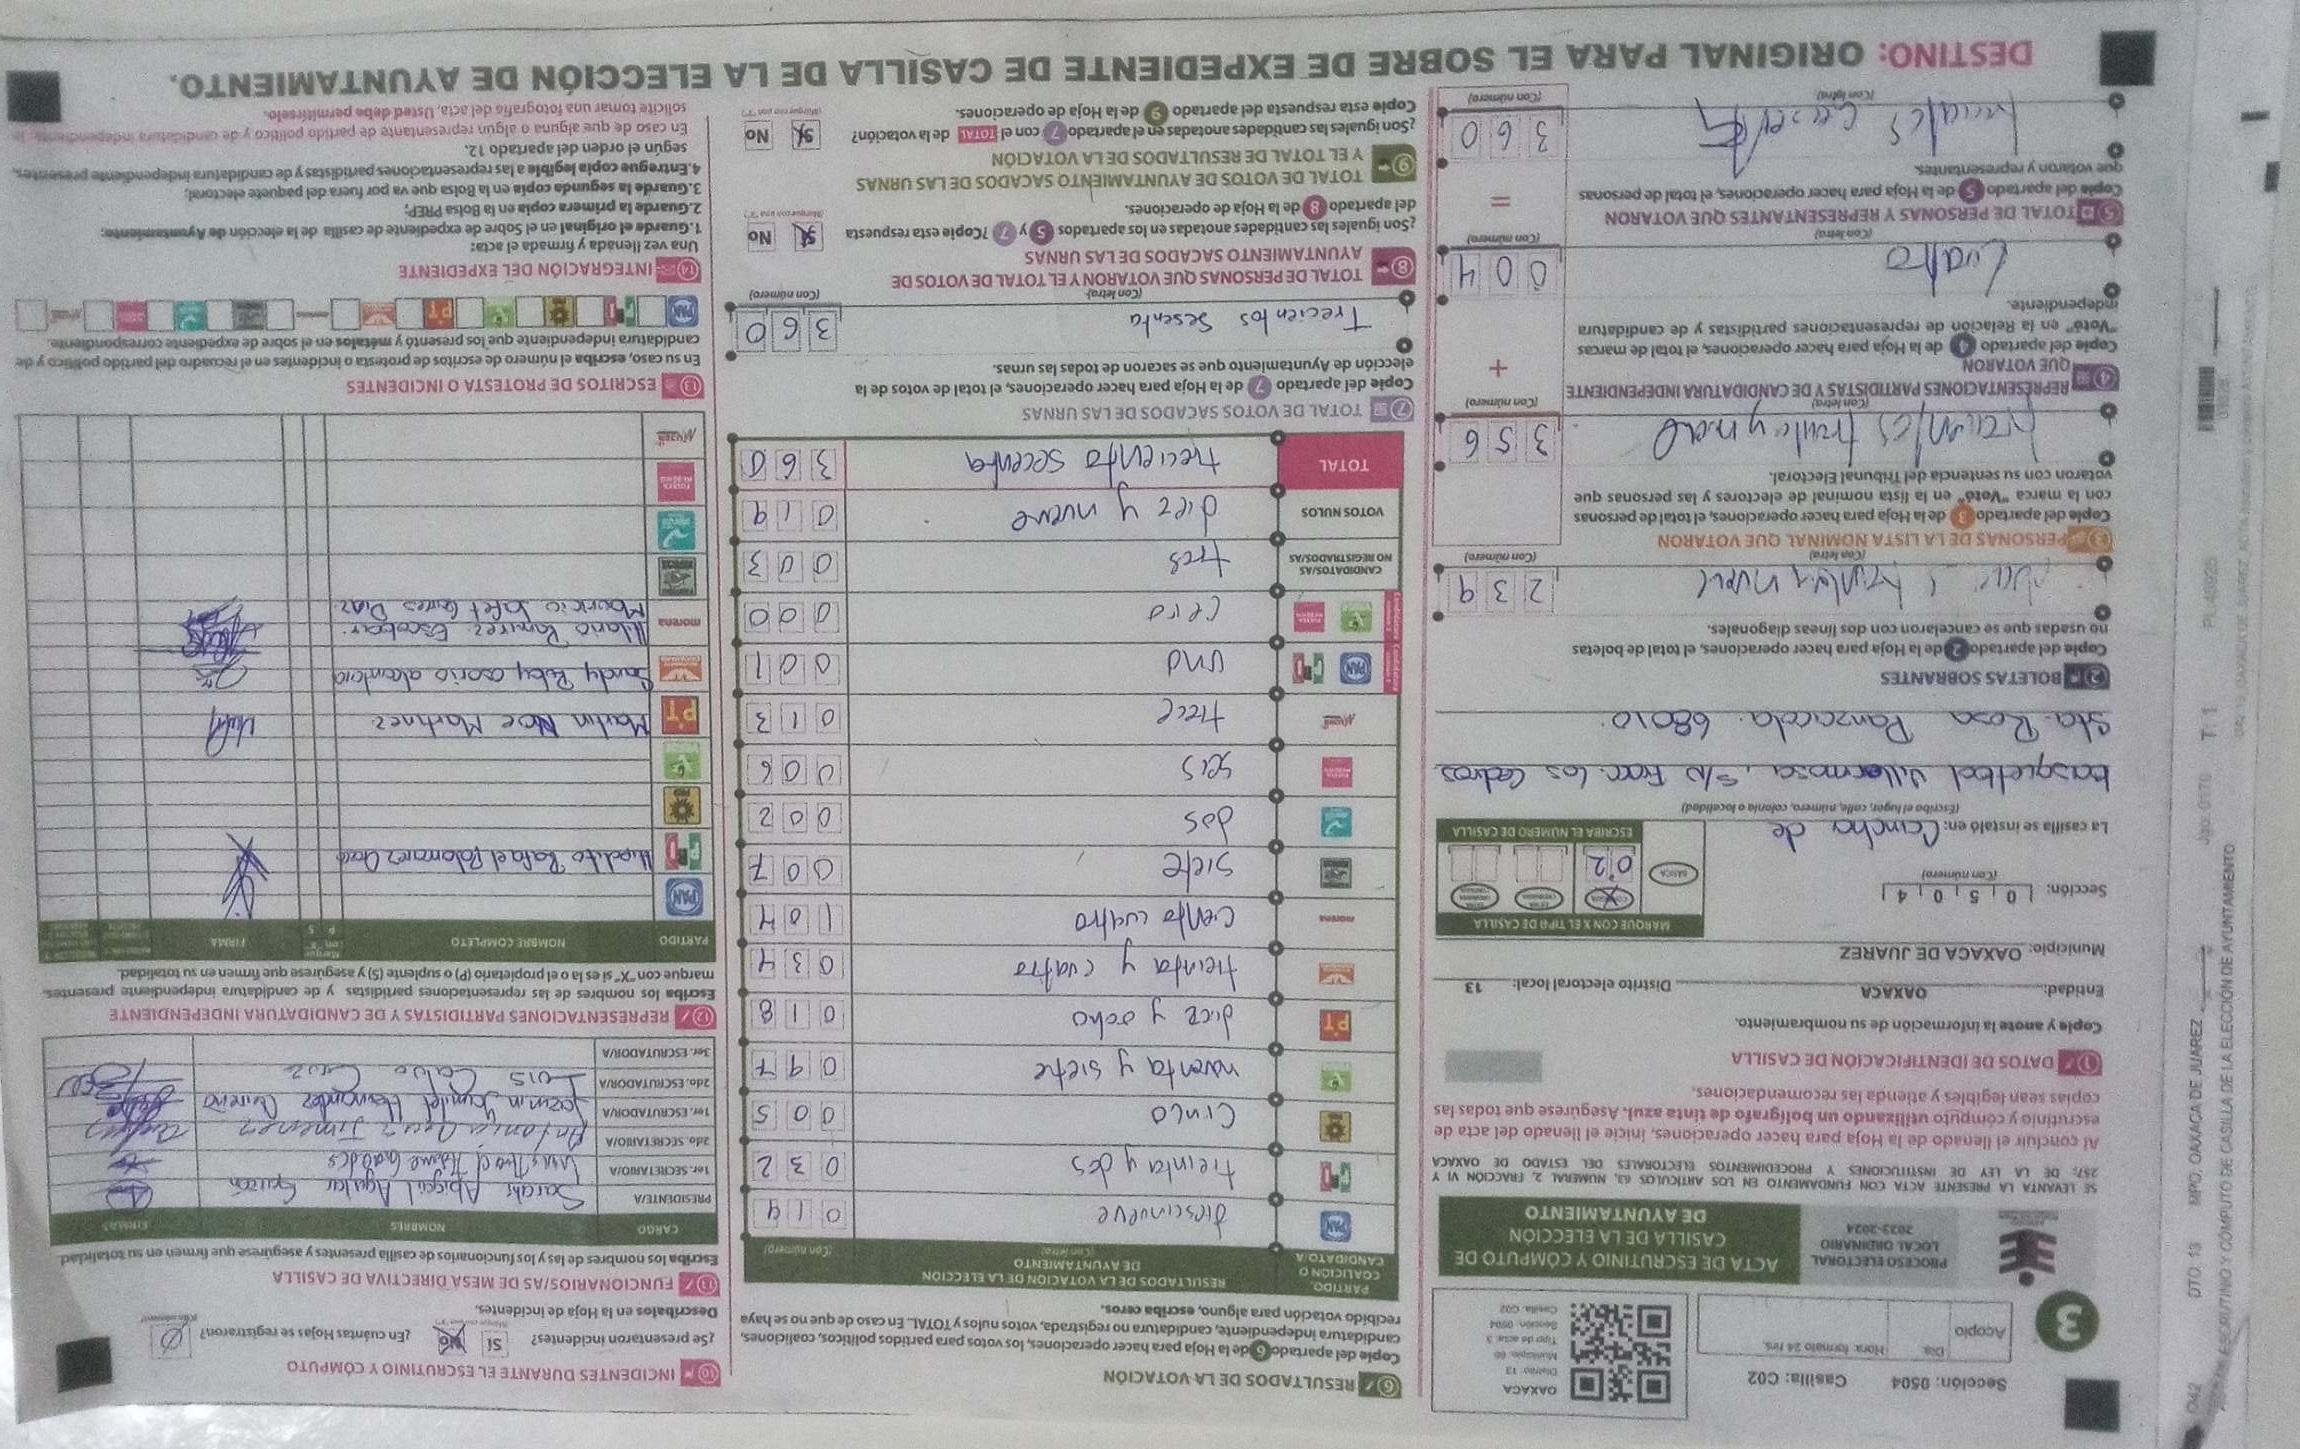 Sección: 0504 Casilla: C02
Acopio
Día Hora: formato 24 hrs.
OAXACA
Distrito: 13
Municipio: 66
Tipo de acta: 3
Sección: 0504
Casilla: C02
3
PROCESO ELECTORAL
LOCAL ORDINARIO
2023-2024
ACTA DE ESCRUTINIO Y CÓMPUTO DE
CASILLA DE LA ELECCIÓN
DE AYUNTAMIENTO
SE LEVANTA LA PRESENTE ACTA CON FUNDAMENTO EN LOS ARTÍCULOS 63, NUMERAL 2, FRACCIÓN VI Y
257; DE LA LEY DE INSTITUCIONES Y PROCEDIMIENTOS ELECTORALES DEL ESTADO DE OAXACA
Al concluir el llenado de la Hoja para hacer operaciones, inicie el llenado del acta de
escrutinio y cómputo utilizando un bolígrafo de tinta azul. Asegúrese que todas las
copias sean legibles y atienda las recomendaciones.
1 DATOS DE IDENTIFICACIÓN DE CASILLA
Copie y anote la información de su nombramiento.
Entidad: OAXACA Distrito electoral local: 13
Municipio: OAXACA DE JUAREZ
Sección: 0504
(Con número)
MARQUE CON X EL TIPO DE CASILLA
BÁSICA
02
ESCRIBA EL NÚMERO DE CASILLA
La casilla se instaló en: Cancha de
(Escriba el lugar, calle, número, colonia o localidad)
basquetbol Villermosa, S/N Fracc. los Cedros
Sta. Rosa Panzacola. 68010.
2 BOLETAS SOBRANTES
Copie del apartado 2 de la Hoja para hacer operaciones, el total de boletas
no usadas que se cancelaron con dos líneas diagonales.
239
(Con letra) (Con número)
3 PERSONAS DE LA LISTA NOMINAL QUE VOTARON
Copie del apartado 3 de la Hoja para hacer operaciones, el total de personas
con la marca "Votó" en la lista nominal de electores y las personas que
votaron con su sentencia del Tribunal Electoral.
356
(Con letra) (Con número)
4 REPRESENTACIONES PARTIDISTAS Y DE CANDIDATURA INDEPENDIENTE
QUE VOTARON
+
Copie del apartado 4 de la Hoja para hacer operaciones, el total de marcas
"Votó" en la Relación de representaciones partidistas y de candidatura
independiente.
Cuatro 004
(Con letra) (Con número)
5 TOTAL DE PERSONAS Y REPRESENTANTES QUE VOTARON
=
Copie del apartado 5 de la Hoja para hacer operaciones, el total de personas
que votaron y representantes.
360
(Con letra) (Con número)
6 RESULTADOS DE LA VOTACIÓN
Copie del apartado 6 de la Hoja para hacer operaciones, los votos para partidos políticos, coaliciones,
candidatura independiente, candidatura no registrada, votos nulos y TOTAL. En caso de que no se haya
recibido votación para alguno, escriba ceros.
PARTIDO,
COALICIÓN O
CANDIDATO/A
RESULTADOS DE LA VOTACIÓN DE LA ELECCIÓN
DE AYUNTAMIENTO
(Con letra) (Con número)
PAN diescinueve 019
PRI treinta y dos 032
PRD Cinco 005
noventa y siete 097
PT diez y ocho 018
treinta y cuatro 034
morena ciento cuatro 104
siete 007
dos 002
seis 006
trece 013
PAN PRI uno 001
cero 000
CANDIDATOS/AS
NO REGISTRADOS/AS tres 003
VOTOS NULOS diez y nueve 019
TOTAL treciento secenta 360
7 TOTAL DE VOTOS SACADOS DE LAS URNAS
Copie del apartado 7 de la Hoja para hacer operaciones, el total de votos de la
elección de Ayuntamiento que se sacaron de todas las urnas.
Trecientos Sesenta 360
(Con letra) (Con número)
8 TOTAL DE PERSONAS QUE VOTARON Y EL TOTAL DE VOTOS DE
AYUNTAMIENTO SACADOS DE LAS URNAS
¿Son iguales las cantidades anotadas en los apartados 5 y 7? Copie esta respuesta
del apartado 8 de la Hoja de operaciones.
Sí No
(Marque con una "X")
9 TOTAL DE VOTOS DE AYUNTAMIENTO SACADOS DE LAS URNAS
Y EL TOTAL DE RESULTADOS DE LA VOTACIÓN
¿Son iguales las cantidades anotadas en el apartado 7 con el TOTAL de la votación?
Copie esta respuesta del apartado 9 de la Hoja de operaciones.
Sí No
(Marque con una "X")
10 INCIDENTES DURANTE EL ESCRUTINIO Y CÓMPUTO
¿Se presentaron incidentes? Sí No ¿En cuántas Hojas se registraron? 0
Descríbalos en la Hoja de incidentes.
11 FUNCIONARIOS/AS DE MESA DIRECTIVA DE CASILLA
Escriba los nombres de las y los funcionarios de casilla presentes y asegúrese que firmen en su totalidad
CARGO NOMBRES FIRMAS
PRESIDENTE/A Sarahi Abigail Aguilar Garzón
1er. SECRETARIO/A
2do. SECRETARIO/A Antonia Cruz Jimenez
1er. ESCRUTADOR/A
2do. ESCRUTADOR/A Luis Calvo Cruz
3er. ESCRUTADOR/A
12 REPRESENTACIONES PARTIDISTAS Y DE CANDIDATURA INDEPENDIENTE
Escriba los nombres de las representaciones partidistas y de candidatura independiente presentes,
marque con "X" si es la o el propietario (P) o suplente (S) y asegúrese que firmen en su totalidad.
PARTIDO NOMBRE COMPLETO FIRMA
PAN
PRI
PRD
PT Martin Noe Martinez
morena Hilario Ramirez Escobar.
13 ESCRITOS DE PROTESTA O INCIDENTES
En su caso, escriba el número de escritos de protesta o incidentes en el recuadro del partido político y de
candidatura independiente que los presentó y métalos en el sobre de expediente correspondiente.
14 INTEGRACIÓN DEL EXPEDIENTE
Una vez llenada y firmada el acta:
1.Guarde el original en el Sobre de expediente de casilla de la elección de Ayuntamiento;
2.Guarde la primera copia en la Bolsa PREP;
3.Guarde la segunda copia en la Bolsa que va por fuera del paquete electoral;
4.Entregue copia legible a las representaciones partidistas y de candidatura independiente presentes,
según el orden del apartado 12.
En caso de que alguna o algún representante de partido político y de candidatura independiente, le
solicite tomar una fotografía del acta, Usted debe permitírselo.
DESTINO: ORIGINAL PARA EL SOBRE DE EXPEDIENTE DE CASILLA DE LA ELECCIÓN DE AYUNTAMIENTO.